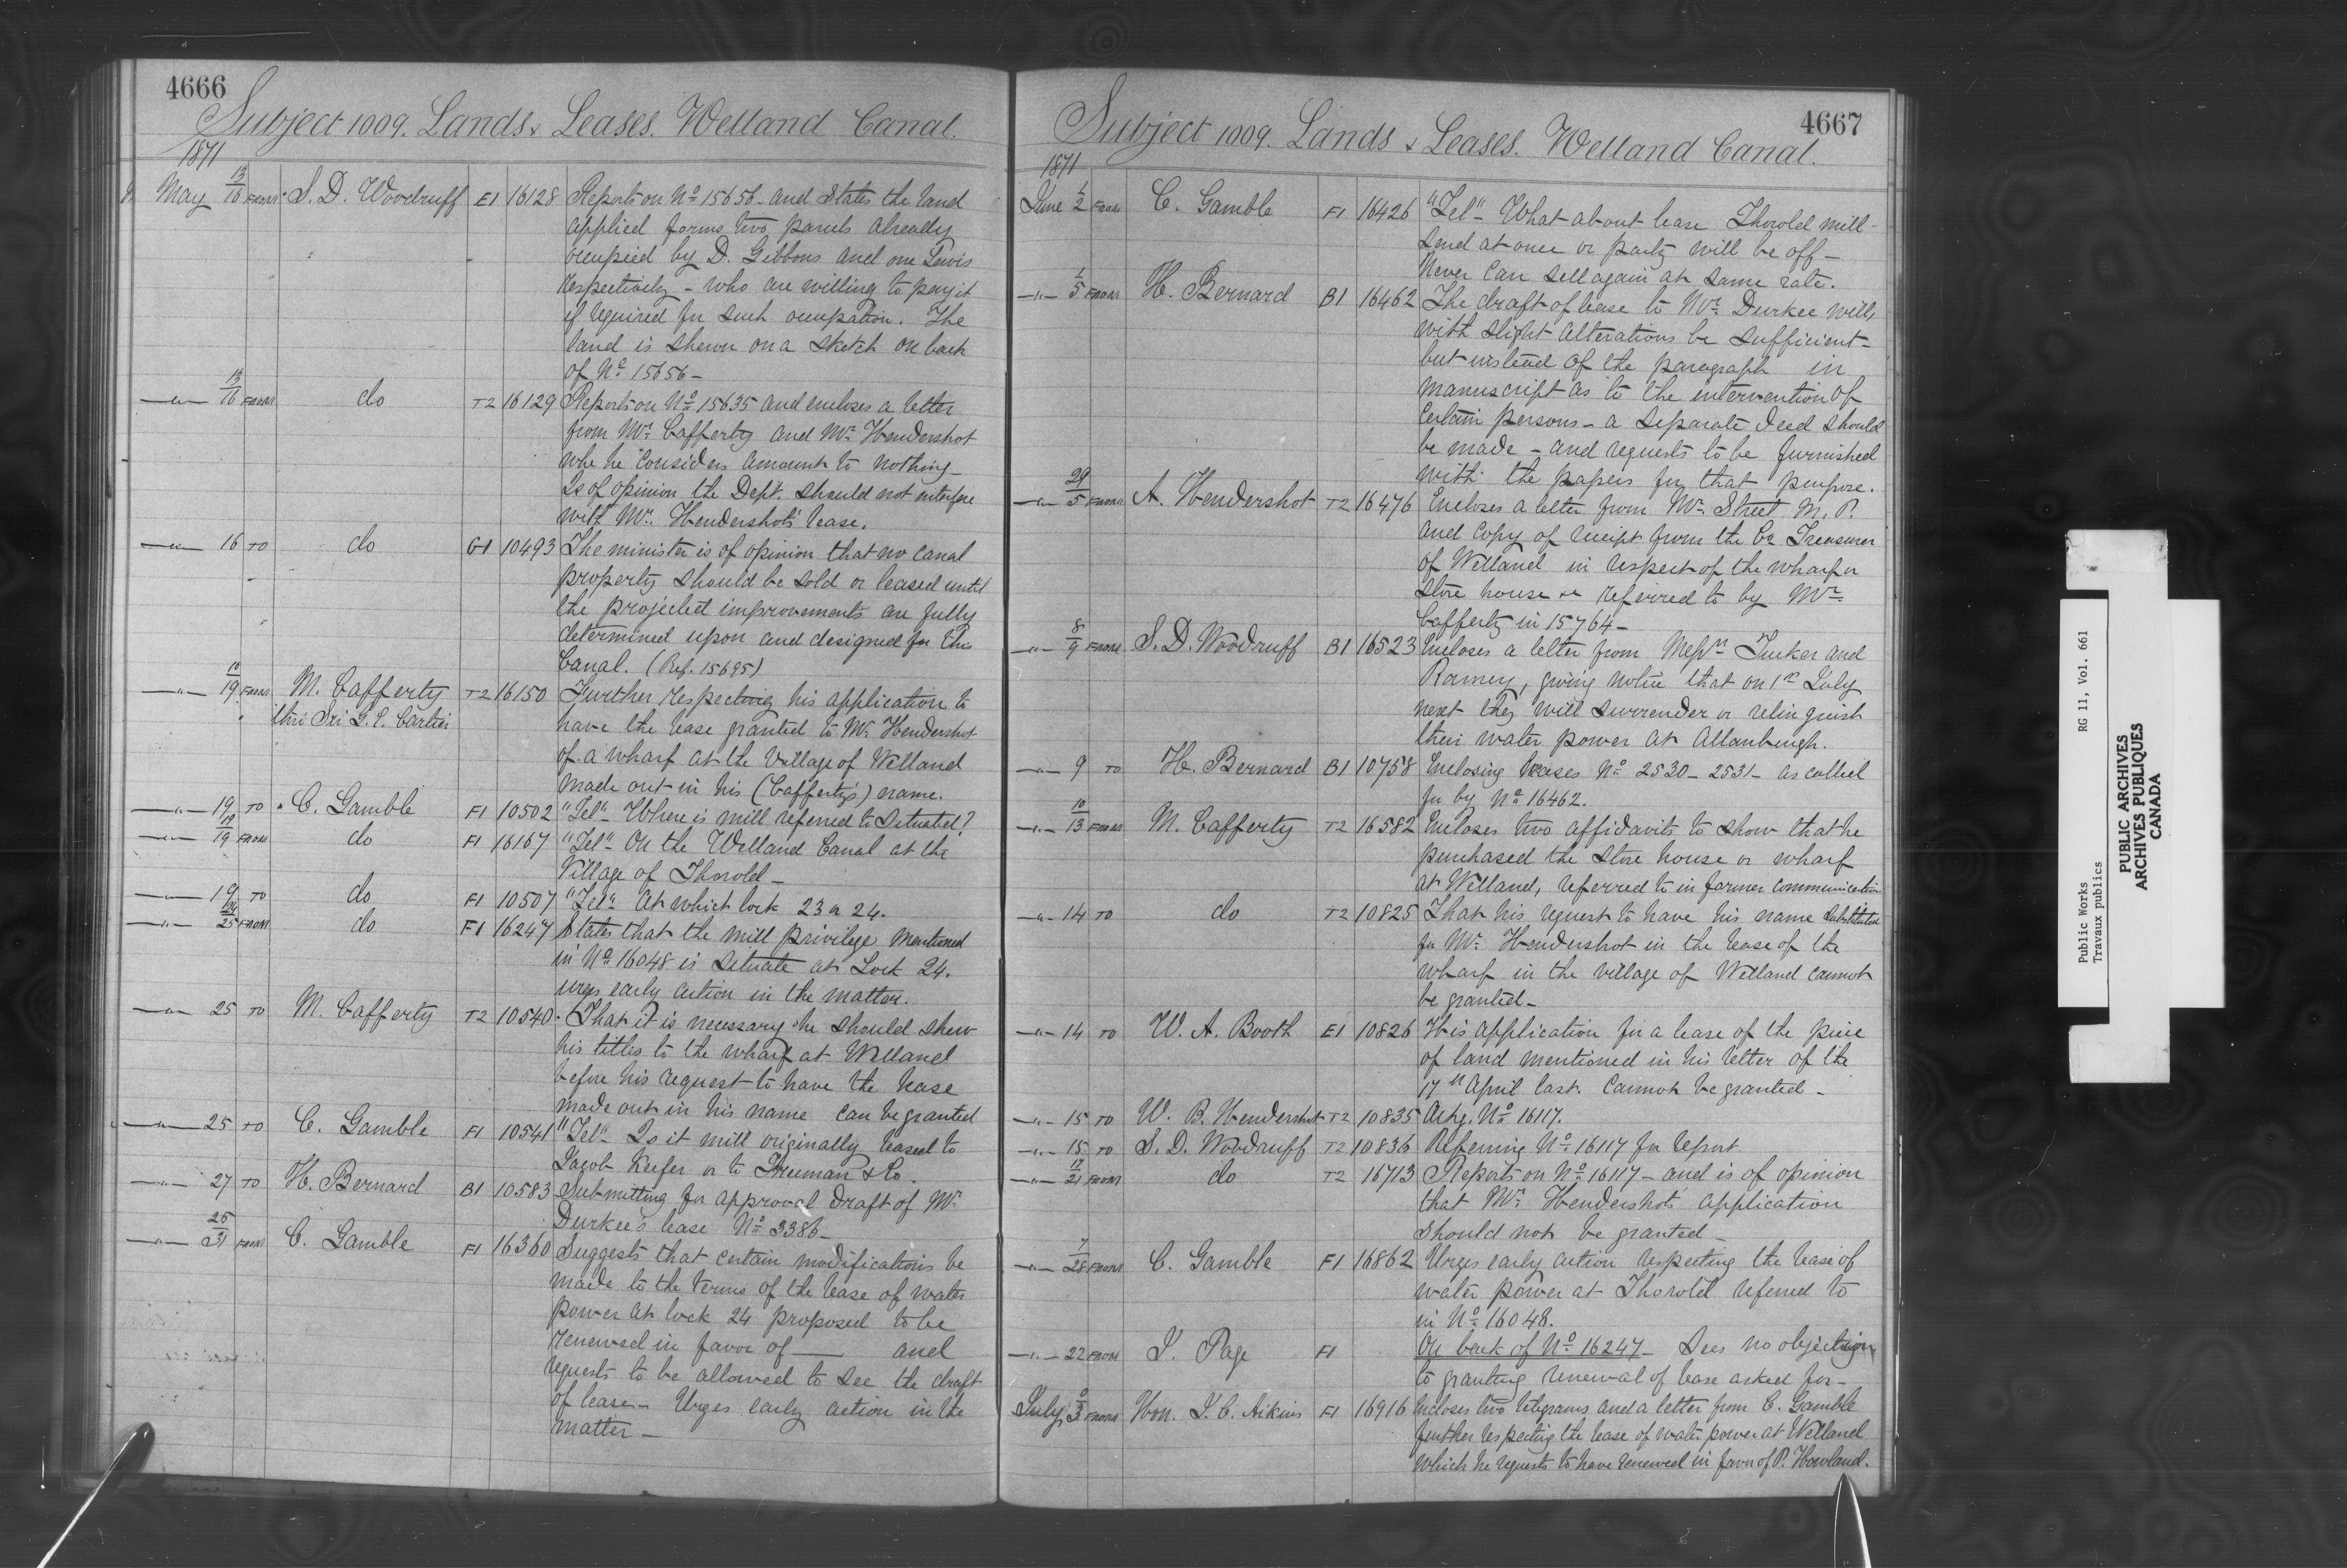 4666
Subject 1009. Lands & Leases. Welland Canal.
1871
May 13/16 FROM S. D. Woodruff E1 16128 Reports on No 15656 - and States the land
applied forms two parcels already
occupied by D. Gibbons and one Lewis
respectively - who are willing to pay it
if required for such occupation. The
land is shewn on a sketch on back
of No 15656 -
—"— 13/16 FROM do T2 16129 Reports on No 15635 and encloses a letter
from Mr. Cafferty and Mr. Hendershot
whe he considers amounts to nothing -
Is of opinion the Dept. should not interfere
with Mr. Hendershots' lease.
—"— 16 TO do G1 10493 The minister is of opinion that no canal
property should be sold or leased until
the projected improvements are fully
determined upon and designed for this
Canal. (Ref. 15695)
—"— 18/19 FROM M. Cafferty T2 16150 Further respecting his application to
thro' Sir G. E. Cartier have the lease granted to Mr. Hendershot
of a wharf at the Village of Welland
made out in his (Cafferty's) name.
—"— 19 TO C. Gamble F1 10502 "Tel" - Where is mill referred to situated?
—"— 19/19 FROM do F1 16167 "Tel" On the Welland Canal at the
Village of Thorold -
—"— 19 TO do F1 10507 "Tel" At which lock 23 or 24.
—"— 24/25 FROM do F1 16247 States that the mill privilege mentioned
in No 16048 is situate at Lock 24.
urges early action in the matter.
—"— 25 TO M. Cafferty T2 10540 That it is necessary he should shew
his titles to the wharf at Welland
before his request to have the lease
made out in his name can be granted
—"— 25 TO C. Gamble F1 10541 "Tel" Is it mill originally leased to
Jacob Keefer or to Freeman & Co.
—"— 27 TO H. Bernard B1 10583 Submitting for approval draft of Mr.
Durkee's lease No 3386 -
—"— 25/31 FROM C. Gamble F1 16360 Suggests that certain modifications be
made to the terms of the lease of water
power at lock 24 proposed to be
renewed in favor of —— and
requests to be allowed to see the draft
of lease - Urges early action in the
matter -
4667
Subject 1009. Lands & Leases. Welland Canal.
1871
June 1/2 FROM C. Gamble F1 16426 "Tel" - What about lease Thorold mill -
send at once or party will be off -
Never can sell again at same rate.
—"— 1/5 FROM H. Bernard B1 16462 The draft of lease to Mr. Durkee will,
with slight alterations be sufficient -
but instead of the paragraph in
manuscript as to the intervention of
certain persons - a separate deed should
be made - and requests to be furnished
with the papers for that purpose.
—"— 29/5 FROM A. Hendershot T2 16476 Encloses a letter from Mr. Street M. P.
and copy of receipt from the Co Treasurer
of Welland in respect of the wharf or
store house &c referred to by Mr.
Cafferty in 15764 -
—"— 8/9 FROM S. D. Woodruff B1 16523 Encloses a letter from Messrs Tucker and
Ramey, giving notice that on 1st July
next they will surrender or relinquish
their water power at Allanburgh.
—"— 9 TO H. Bernard B1 10758 Enclosing leases No 2530 - 2531 - as called
for by No 16462.
—"— 10/13 FROM M. Cafferty T2 16582 Encloses two affidavits to show that he
purchased the store house or wharf
at Welland, referred to in former communication
—"— 14 TO do T2 10825 That his request to have his name substituted
for Mr. Hendershot in the lease of the
wharf in the village of Welland cannot
be granted -
—"— 14 TO W. A. Booth E1 10826 His application for a lease of the piece
of land mentioned in his letter of the
17th April last. cannot be granted -
—"— 15 TO W. B. Hendershot T2 10835 Ackg. No 16117.
—"— 15 TO S. D. Woodruff T2 10836 Referring No 16117 for report
—"— 17/21 FROM do T2 16713 Reports on No 16117 - and is of opinion
that Mr. Hendershots' application
should not be granted -
—"— 7/28 FROM C. Gamble F1 16862 Urges early action respecting the lease of
water power at Thorold referred to
in No 16048.
—"— 22 FROM J. Page F1 On back of No 16247 - Sees no objection
to granting renewal of lease asked for -
July 3 FROM Hon. J. C. Aikins F1 16916 Encloses two telegrams and a letter from C. Gamble
further respecting the lease of water power at Welland
which he requests to have renewed in favor of P. Howland.
Public Works RG 11, Vol. 661
Travaux publics
PUBLIC ARCHIVES
ARCHIVES PUBLIQUES
CANADA